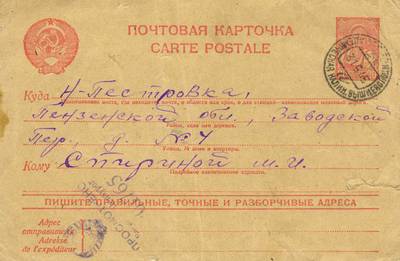 ПОЧТОВАЯ КАРТОЧКА
CARTE POSTALE
Куда Н-Пестровка,
Пензенской обл., Заводской
пер., д. №4
Кому Спириной М.И.
Подробное наименование адресата
ПИШИТЕ ПРАВИЛЬНЫЕ, ТОЧНЫЕ И РАЗБОРЧИВЫЕ АДРЕСА
Адрес
отправителя
Adresse de
l'expéditeur